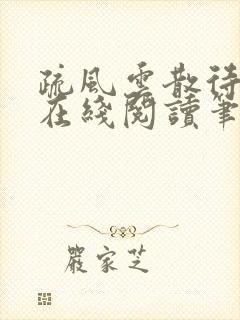 疏風雲散待
在綫閱讀筆
嚴家芝